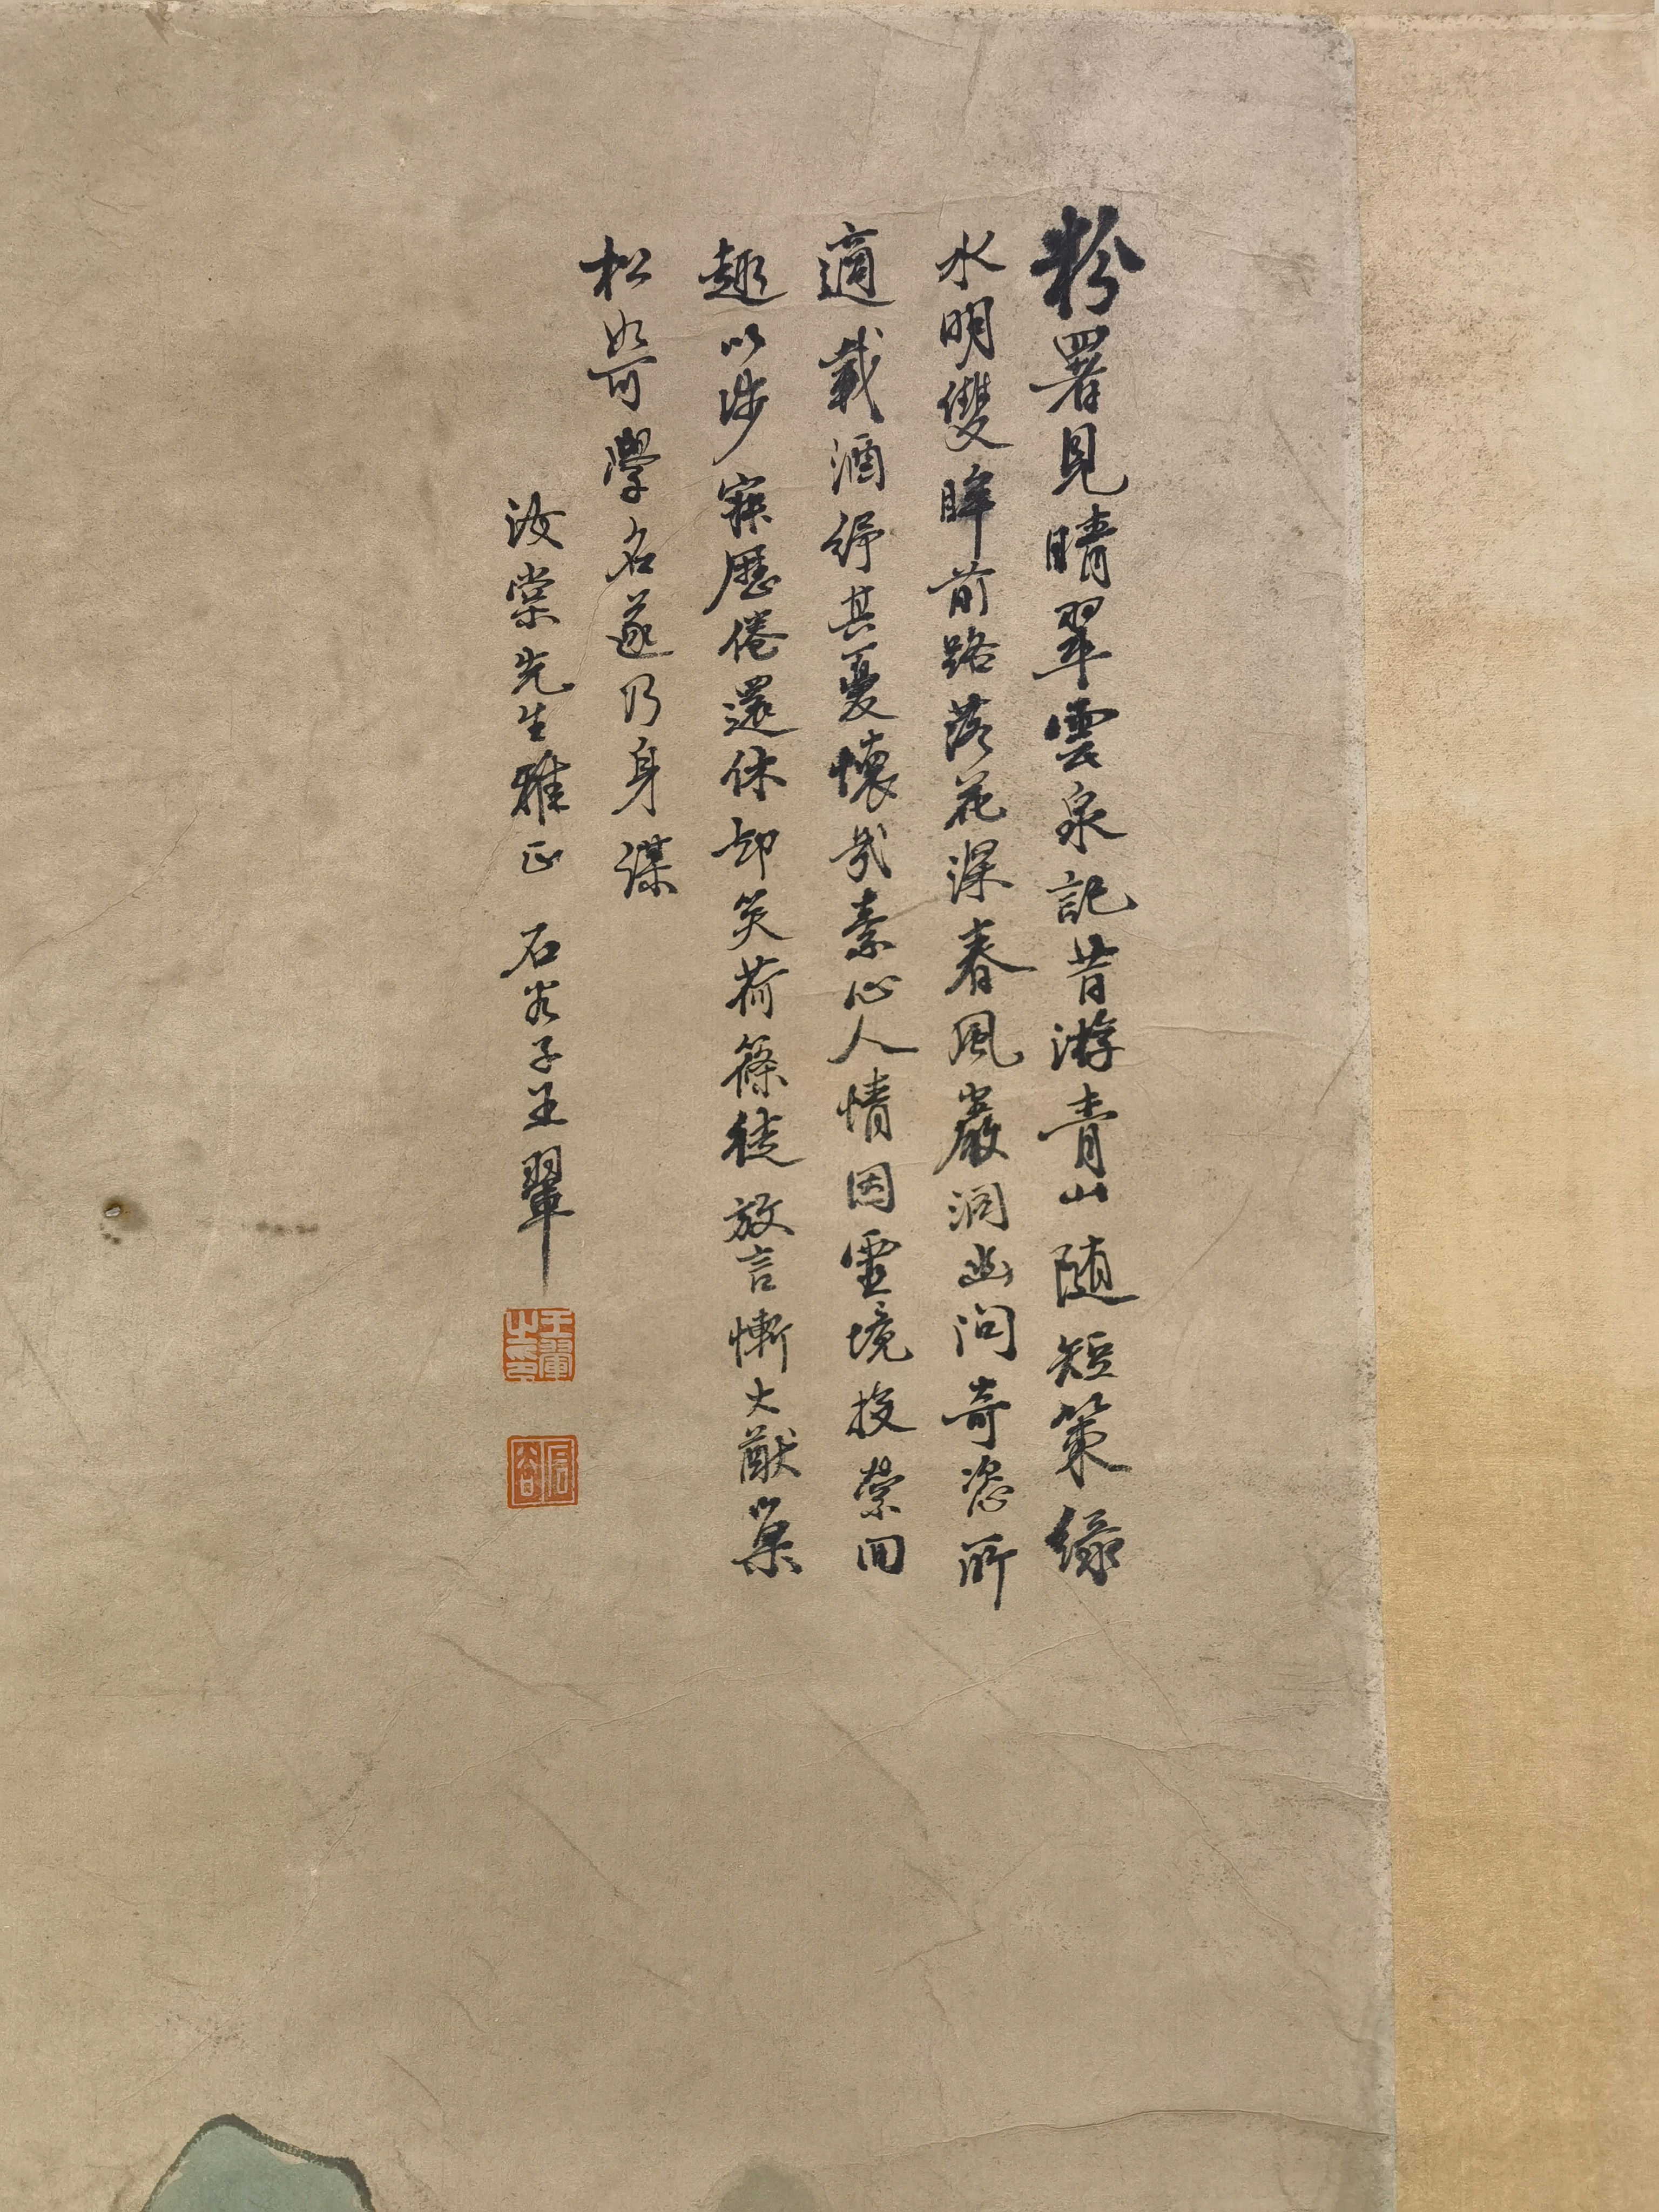 粉署見晴翠雲泉記昔游青山随短策緑
水明雙眸前路落花深春風巖洞幽問奇恣所
適載酒紓其憂懷哉素心人情因靈境投縈回
趣以涉寂歷倦還休却笑荷篠徒放言慚大猷巢
松如可學名遂乃身謀
汝棠先生雅正 石谷子王翬
王翬之印
石谷